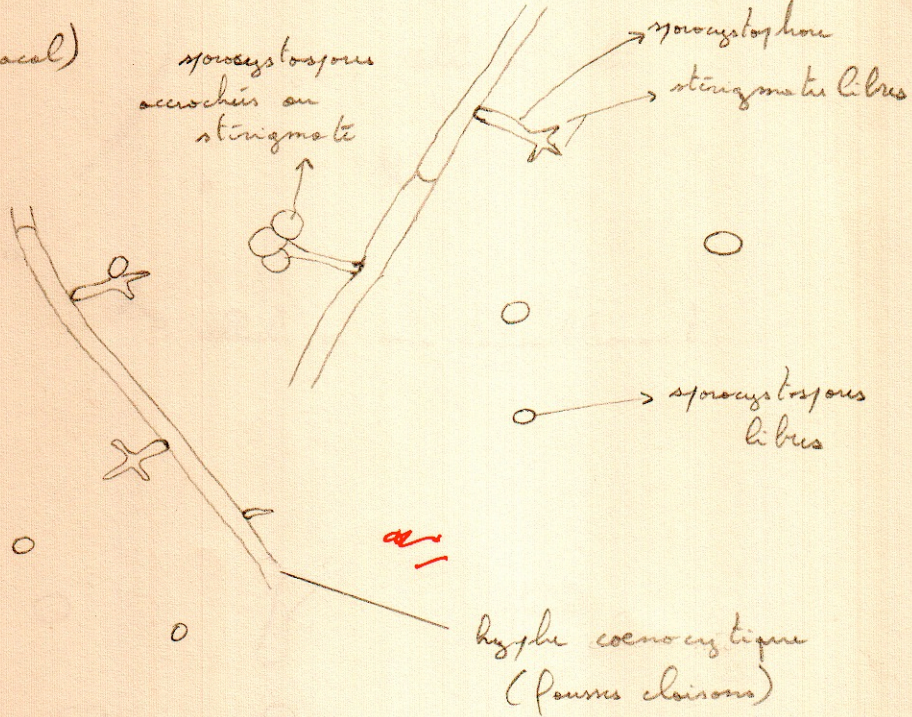 acal)
sporocystospores
accrochés au
stérigmate
sporocystophore
stérigmates libres
sporocystospores
libres
hyphe coenocytique
(fausses cloisons)